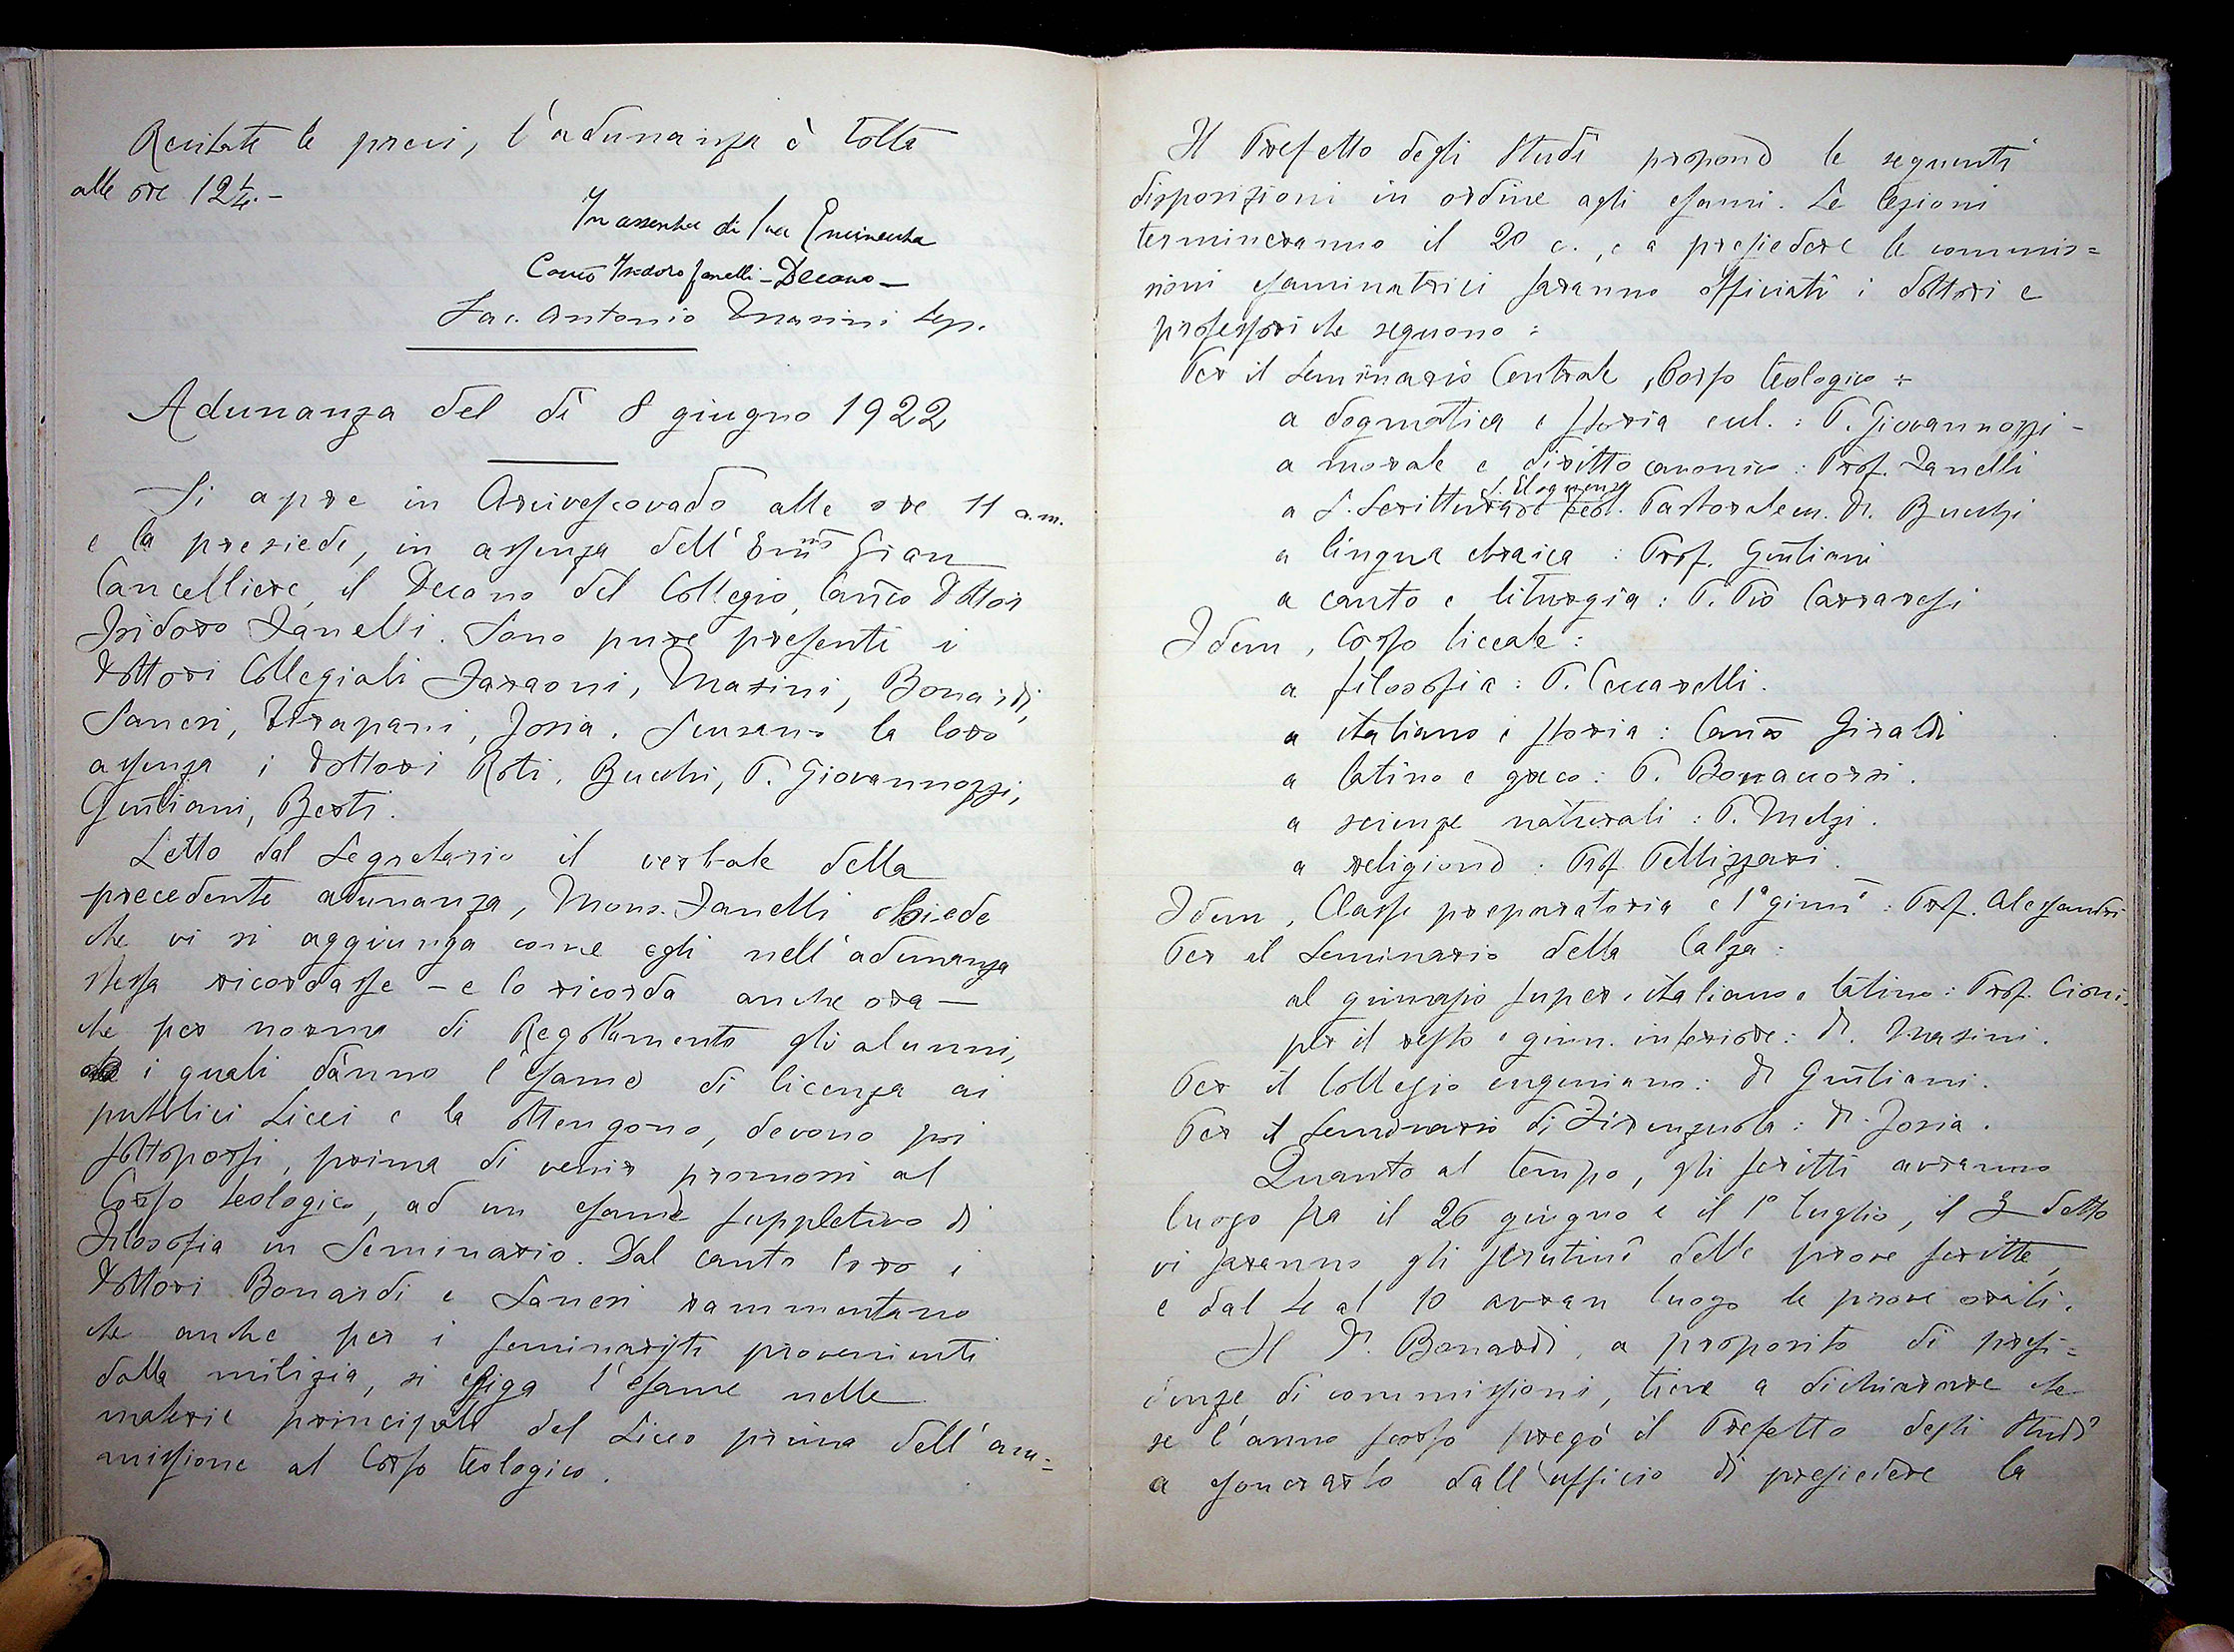 Recitate le preci, l'adunanza è tolta
alle ore 12 1/4. -
In assenza di Sua Eminenza
Canco Isidoro Fanelli - Decano -
Sac. Antonio Masini Seg.
Adunanza del dì 8 giugno 1922
Si apre in Arcivescovado alle ore 11 a.m.
e la presiede, in assenza dell'Emmo Gran
Cancelliere, il Decano del Collegio, Canco Dottor
Isidoro Fanelli. Sono pure presenti i
Dottori Collegiali Faraoni, Masini, Bonardi,
Saneri, Trapani, Josia. Scusano la loro
assenza i Dottori Roti, Bucchi, P. Giovannozzi,
Giuliani, Berti.
Letto dal Segretario il verbale della
precedente adunanza, Mons. Fanelli chiede
che vi si aggiunga come egli nell'adunanza
stessa ricordasse - e lo ricorda anche ora -
che per norma di Regolamento gli alunni,
i quali dànno l'esame di licenza ai
pubblici Licei e la ottengono, devono poi
sottoporsi, prima di venir promossi al
Corso teologico, ad un esame suppletivo di
Filosofia in Seminario. Dal canto loro i
Dottori Bonardi e Saneri rammentano
che anche per i seminaristi provenienti
dalla milizia, si esiga l'esame nelle
materie principali del Liceo prima dell'am=
missione al Corso teologico.
Il Prefetto degli Studî propone le seguenti
disposizioni in ordine agli esami. Le lezioni
termineranno il 20 c., e a presiedere le commis=
sioni esaminatrici saranno officiati i dottori e
professori che seguono:
Per il Seminario Centrale, Corso teologico:
a dogmatica e storia eccl.: P. Giovannozzi -
a morale e diritto canonico: Prof. Fanelli
S. Eloquenza
a S. Scrittura e teol. Pastorale m. Dr. Bucchi
a lingua ebraica: Prof. Giuliani
a canto e liturgia: P. Pio Carraresi
Idem, Corso liceale:
a filosofia: P. Ceccarelli.
a italiano e storia: Canco Giraldi
a latino e greco: P. Bonaccorsi.
a scienze naturali: P. Melzi.
a religione: Prof. Pellizzari.
Idem, Classe preparatoria e 1a ginn.: Prof. Alessandri
Per il Seminario della Calza:
al ginnasio super. italiano e latino: Prof. Cioni.
per il resto e ginn. inferiore: Dr. Masini.
Per il Collegio eugeniano: Dr Giuliani.
Per il Seminario di Firenzuola: Dr. Josia.
Quanto al tempo, gli scritti avranno
luogo fra il 26 giugno e il 1o luglio, il 3 detto
vi saranno gli scrutinî delle prove scritte,
e dal 4 al 10 avran luogo le prove orali.
Il Dr. Bonardi, a proposito di presi=
denze di commissioni, tiene a dichiarare che
se l'anno scorso pregò il Prefetto degli Studî
a esonerarlo dall'ufficio di presiedere la